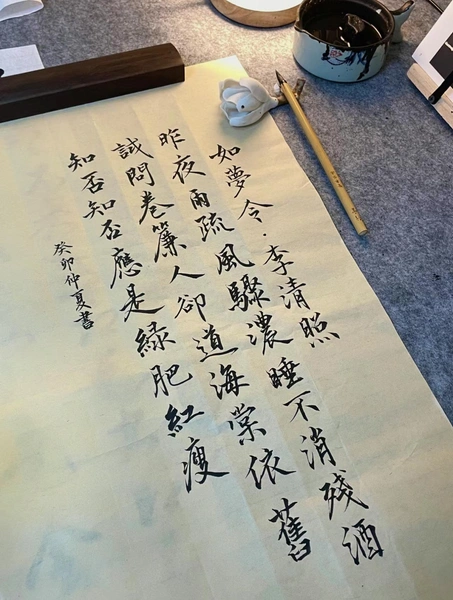 如夢令·李清照
昨夜雨疏風驟濃睡不消殘酒
試問卷簾人卻道海棠依舊
知否知否應是綠肥紅瘦
癸卯仲夏書